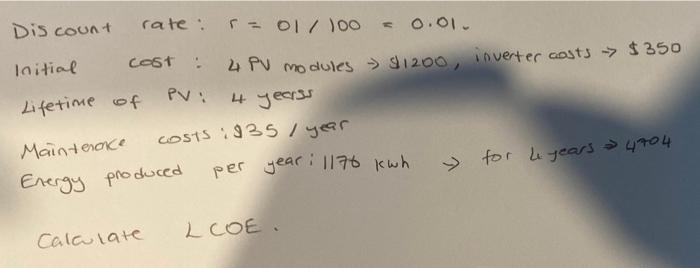 Discount rate: r = 01/100 = 0.01.
Initial cost: 4 PV modules → $1200, inverter costs → $350
Lifetime of PV: 4 yearss
Maintenance costs: $35/year
Energy produced per year: 1176 kwh → for 4 years → 4704
Calculate LCOE.